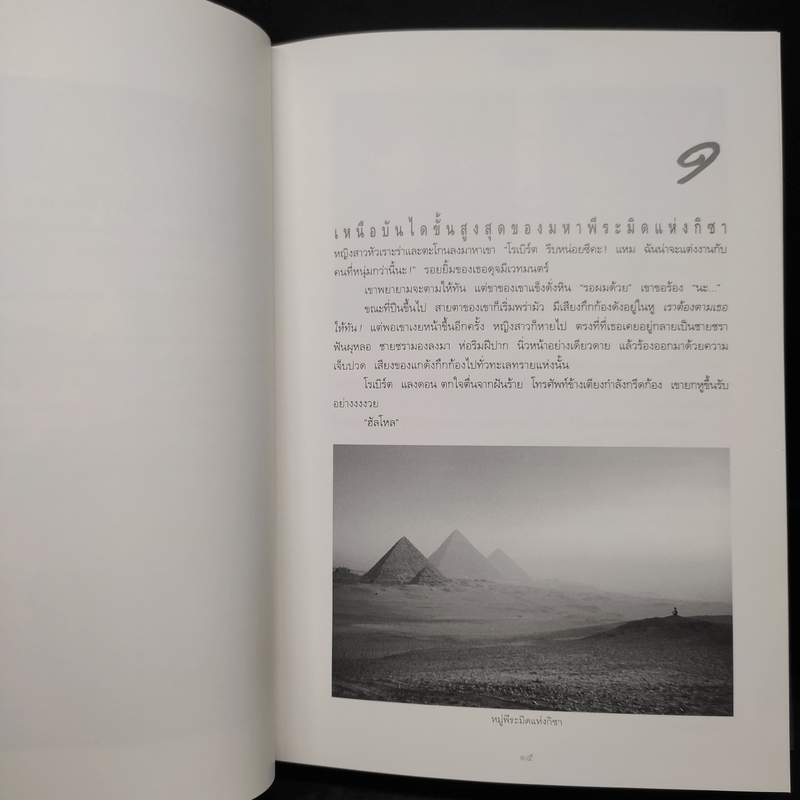 ๑
เหนือบันไดขั้นสูงสุดของมหาพีระมิดแห่งกิซา
หญิงสาวหัวเราะร่าและตะโกนลงมาหาเขา "โรเบิร์ต รีบหน่อยซีคะ! แหม ฉันน่าจะแต่งงานกับ
คนที่หนุ่มกว่านี้นะ!" รอยยิ้มของเธอดุจมีเวทมนตร์
เขาพยายามจะตามให้ทัน แต่ขาของเขาแข็งดั่งหิน "รอผมด้วย" เขาขอร้อง "นะ..."
ขณะที่ปีนขึ้นไป สายตาของเขาก็เริ่มพร่ามัว มีเสียงกึกก้องดังอยู่ในหู เราต้องตามเธอ
ให้ทัน! แต่พอเขาเงยหน้าขึ้นอีกครั้ง หญิงสาวก็หายไป ตรงที่ที่เธอเคยอยู่กลายเป็นชายชรา
ฟันผุหลอ ชายชรามองลงมา ห่อริมฝีปาก นิ่วหน้าอย่างเดียวดาย แล้วร้องออกมาด้วยความ
เจ็บปวด เสียงของแกดังกึกก้องไปทั่วทะเลทรายแห่งนั้น
โรเบิร์ต แลงดอน ตกใจตื่นจากฝันร้าย โทรศัพท์ข้างเตียงกำลังกรีดก้อง เขายกหูขึ้นรับ
อย่างงงงวย
"ฮัลโหล"
หมู่พีระมิดแห่งกิซา
๑๕